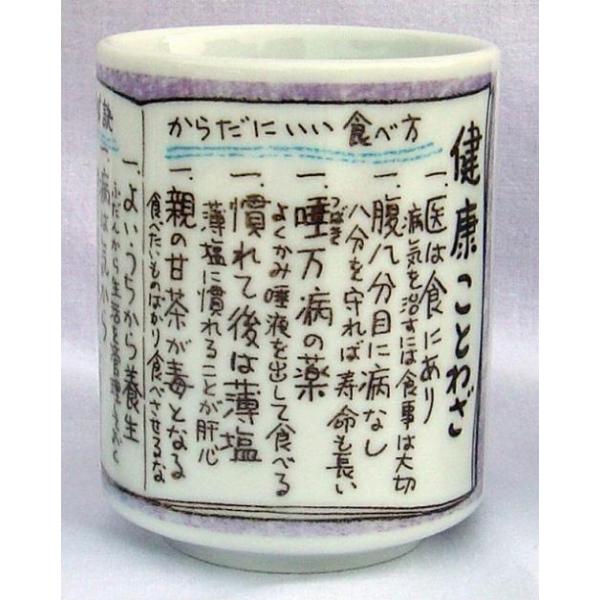 健康ことわざ
からだにいい食べ方
一、医は食にあり
病気を治すには食事は大切
一、腹八分目に病なし
八分を守れば寿命も長い
一、唾万病の薬
つばき
よくかみ唾液を出して食べる
一、慣れて後は薄塩
薄塩に慣れることが肝心
一、親の甘茶が毒となる
食べたいものばかり食べさせるな
訣
一、よいうちから養生
ふだんから生活を管理しておく
一、病は気から